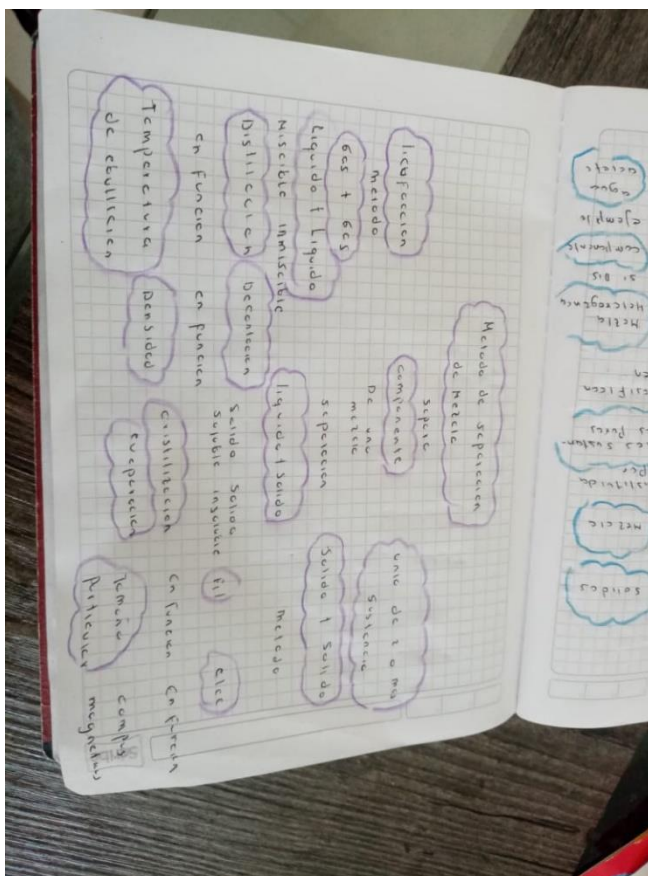 Metodo de separacion
de Mezcla
separa
componente
De una
mezcla
separacion
unio de 2 o mas
sustancia
licuefaccion
metodo
Gas + Gas
Liquido + Liquido
Miscible inmiscible
Distilacion
Decantacion
en funcion
en funcion
Temperatura
de ebullicion
Densidad
liquido + solido
Solido solido
soluble insoluble
cristalizacion
evaporacion
Solido + Solido
metodo
en funcion
en funcion
Tamaño
particular
campo
magnetico
Solidos
Mezcla
Mezcla
Heterogenea
componente
ejemplo
agua
aceite